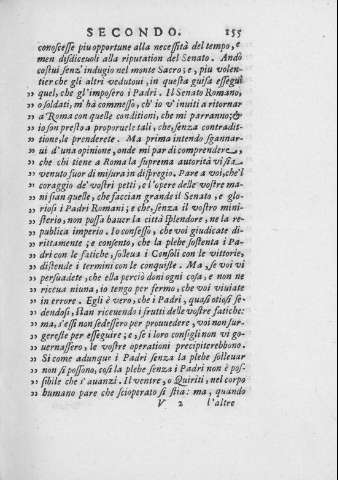 SECONDO. 155
conoscesse piu opportune alla necessità del tempo, e
men disdiceuoli alla riputation del Senato. Andò
costui senz'indugio nel monte Sacro; e, piu volen-
tier che gli altri vedutoui, in questa guisa esseguì
„ quel, che gl'imposero i Padri. Il Senato Romano,
„ o soldati, m'hà commesso, ch'io v'inuiti a ritornar
„ a Roma con quelle conditioni, che mi parranno; &
„ io son presto a proporuele tali, che, senza contradit-
„ tione, le prenderete. Ma prima intendo sgannar-
„ ui d'una opinione, onde mi par di comprendere,
„ che chi tiene a Roma la suprema autorità vi sia
„ venuto fuor di misura in dispregio. Pare a voi, che'l
„ coraggio de' vostri petti, e l'opere delle vostre ma-
„ ni sian quelle, che faccian grande il Senato, e glo-
„ riosi i Padri Romani; e che, senza il vostro mini-
„ sterio, non possa hauer la città splendore, ne la re-
„ publica imperio. Io confesso, che voi giudicate di-
„ rittamente; e consento, che la plebe sostenta i Pa-
„ dri con le fatiche, solleua i Consoli con le vittorie,
„ distende i termini con le conquiste. Ma, se voi vi
„ persuadete, che ella perciò doni ogni cosa, e non ne
„ riceua niuna, io tengo per fermo, che voi viuiate
„ in errore. Egli è vero, che i Padri, quasi otiosi se-
„ dendosi, stan riceuendo i frutti delle vostre fatiche:
„ ma, s'essi non sedessero per prouedere, voi non sur-
„ gereste per esseguire; e, se i lor consigli non vi go-
„ uernassero, le vostre operationi precipiterebbono.
„ Si come adunque i Padri senza la plebe solleuar
„ non si possono, così la plebe senza i Padri non è pos-
„ sibile che s'auanzi. Il ventre, o Quiriti, nel corpo
„ humano pare che scioperato si stia: ma, quando
V 2 l'altre